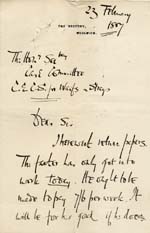 23 February
1887
THE RECTORY,
WOOLWICH.
The Hon. Sec
C.E.C.S. for Waifs & Strays
Dear Sir
I herewith return papers.
The father has only got into
work today. He ought to be
made to pay 7/6 per week. It
will be for his good if his